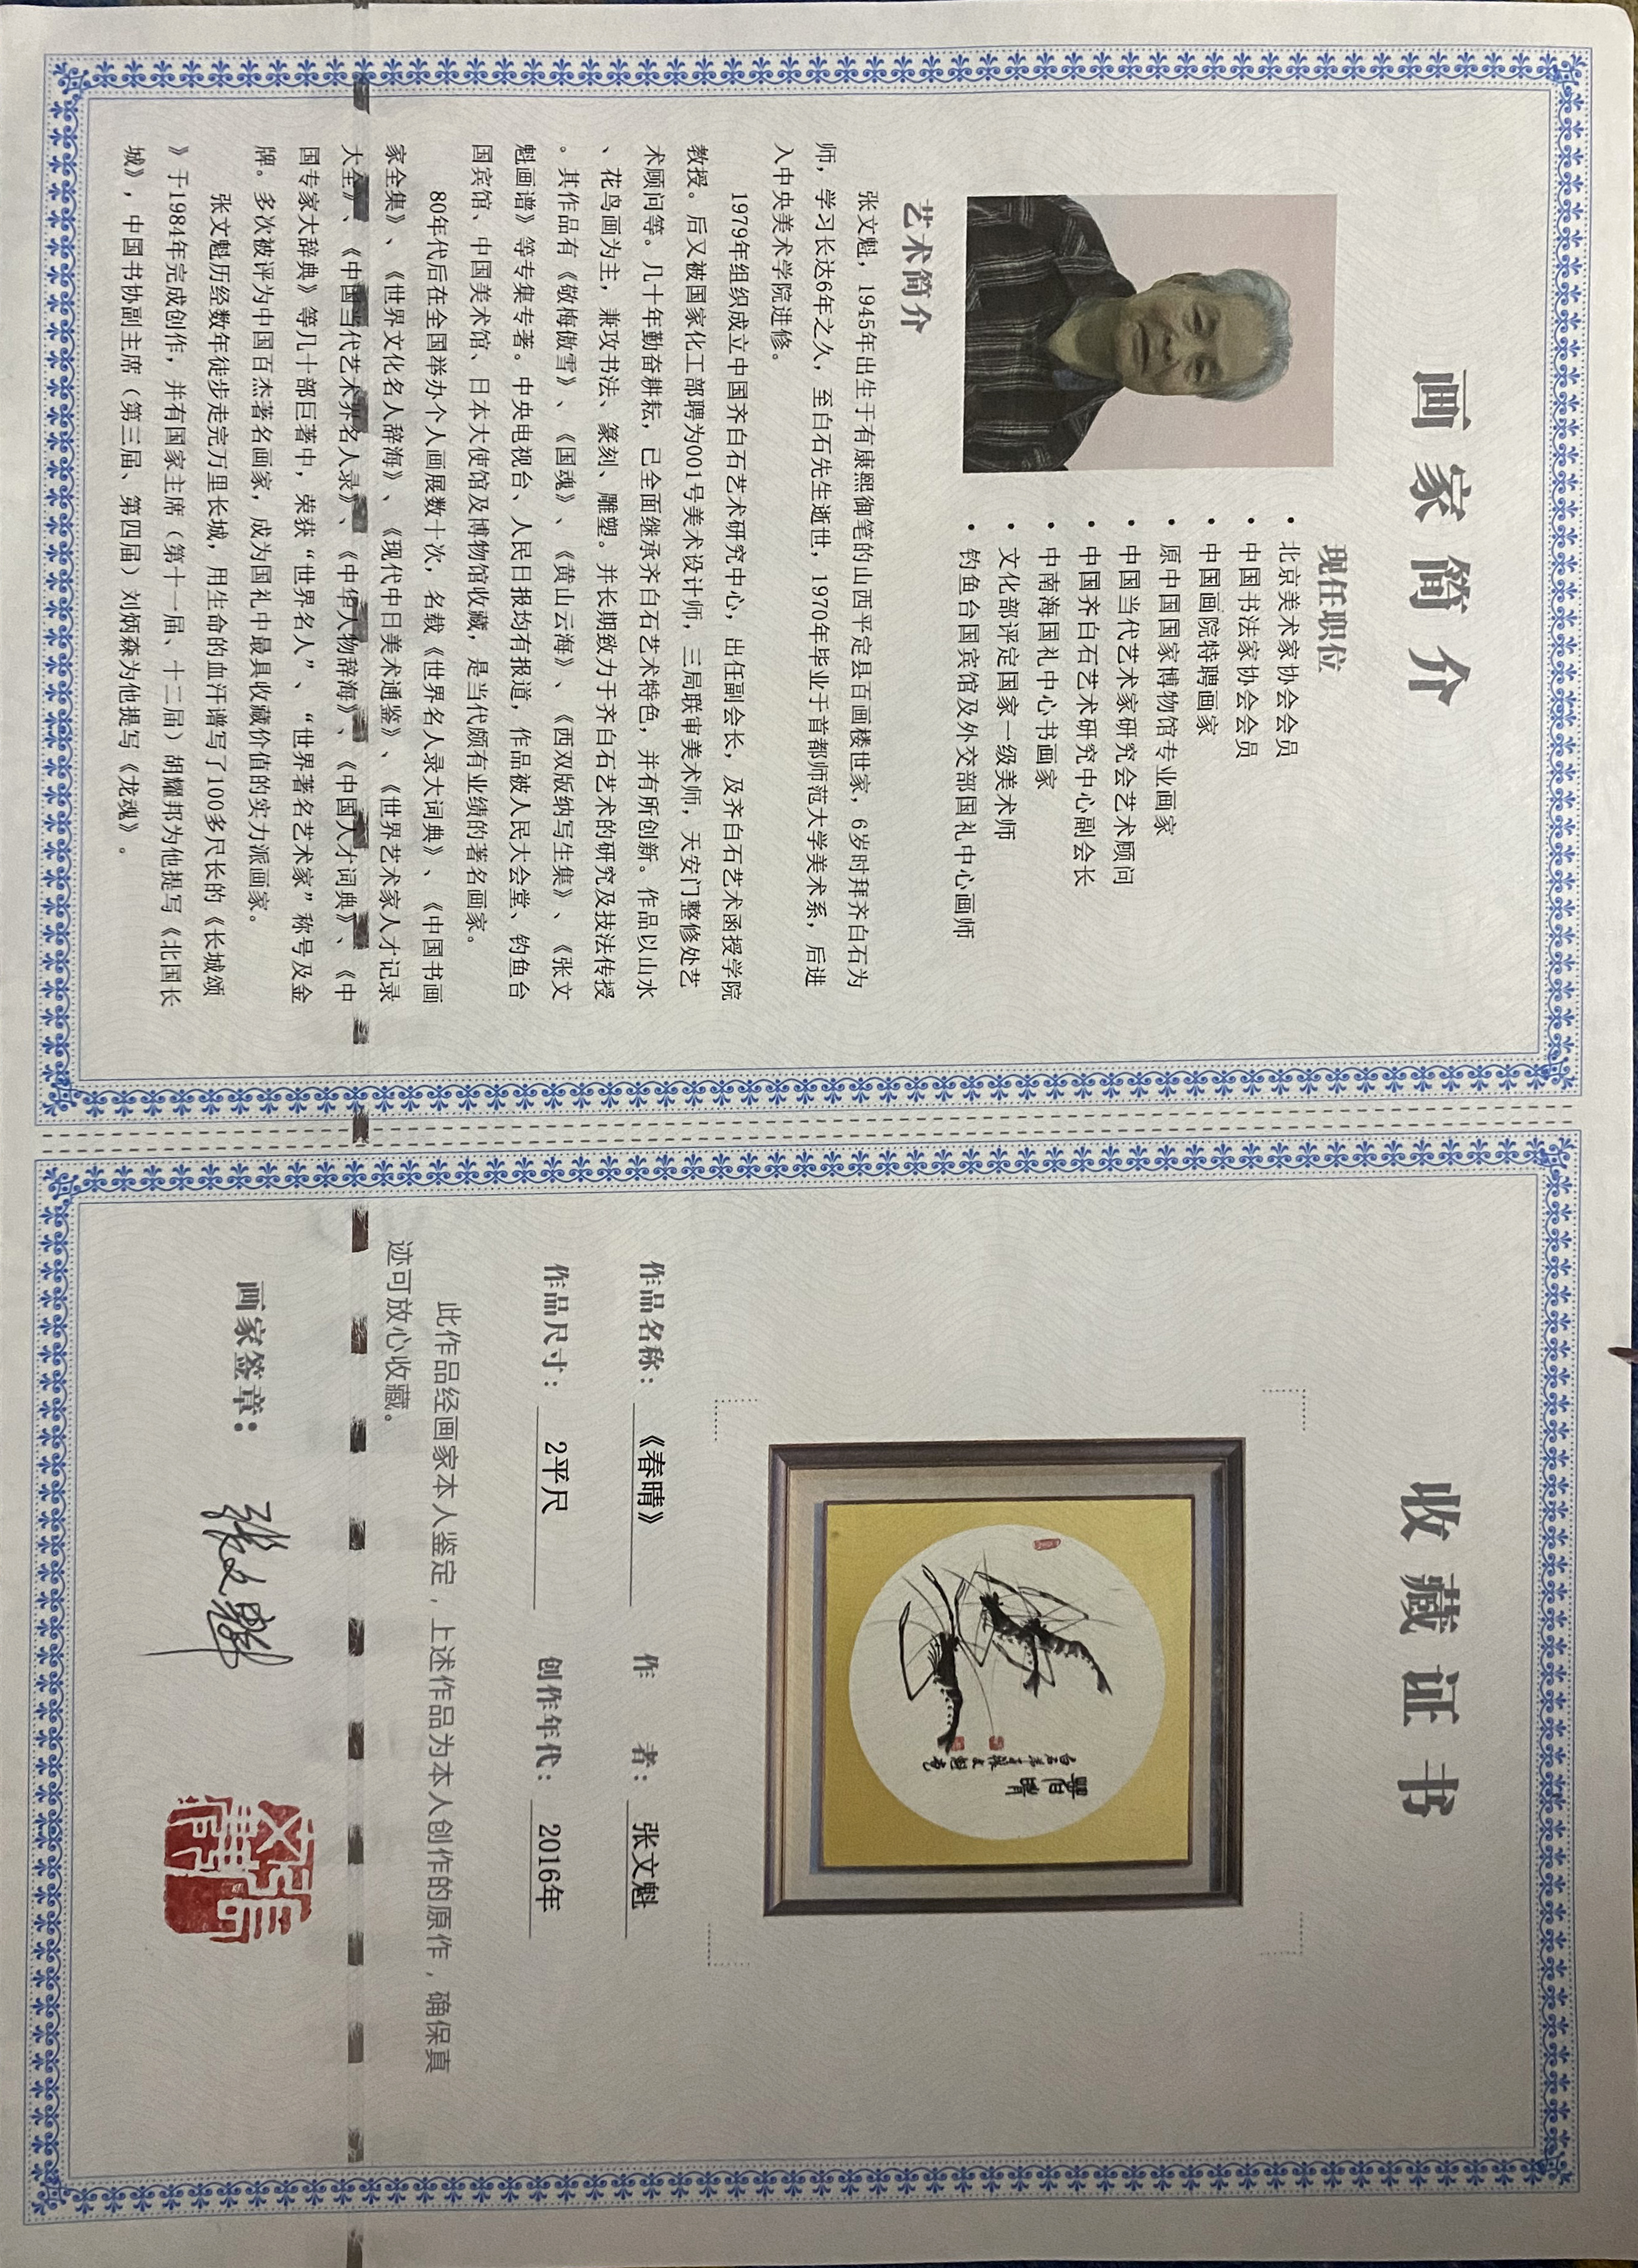 画家简介
现任职位
• 北京美术家协会会员
• 中国书法家协会会员
• 中国画院特聘画家
• 原中国国家博物馆专业画家
• 中国当代艺术家研究会艺术顾问
• 中国齐白石艺术研究中心副会长
• 中南海国礼中心书画家
• 文化部评定国家一级美术师
• 钓鱼台国宾馆及外交部国礼中心画师
艺术简介
张文魁，1945年出生于有康熙御笔的山西平定县百画楼世家，6岁时拜齐白石为
师，学习长达6年之久，至白石先生逝世，1970年毕业于首都师范大学美术系，后进
入中央美术学院进修。
1979年组织成立中国齐白石艺术研究中心，出任副会长，及齐白石艺术函授学院
教授。后又被国家化工部聘为001号美术设计师，三局联审美术师，天安门整修处艺
术顾问等。几十年勤奋耕耘，已全面继承齐白石艺术特色，并有所创新。作品以山水
、花鸟画为主，兼攻书法、篆刻、雕塑。并长期致力于齐白石艺术的研究及技法传授
。其作品有《敬梅傲雪》、《国魂》、《黄山云海》、《西双版纳写生集》、《张文
魁画谱》等专集专著。中央电视台、人民日报均有报道，作品被人民大会堂、钓鱼台
国宾馆、中国美术馆、日本大使馆及博物馆收藏，是当代颇有业绩的著名画家。
80年代后在全国举办个人画展数十次，名载《世界名人录大词典》、《中国书画
家全集》、《世界文化名人辞海》、《现代中日美术通鉴》、《世界艺术家人才记录
大全》、《中国当代艺术界名人录》、《中华人物辞海》、《中国人才词典》、《中
国专家大辞典》等几十部巨著中，荣获“世界名人”、“世界著名艺术家”称号及金
牌。多次被评为中国百杰著名画家，成为国礼中最具收藏价值的实力派画家。
张文魁历经数年徒步走完万里长城，用生命的血汗谱写了100多尺长的《长城颂
》于1984年完成创作，并有国家主席（第十一届、十二届）胡耀邦为他提写《北国长
城》，中国书协副主席（第三届、第四届）刘炳森为他提写《龙魂》。
收藏证书
作品名称：《春晴》 作 者：张文魁
作品尺寸：2平尺 创作年代：2016年
此作品经画家本人鉴定，上述作品为本人创作的原作，确保真
迹可放心收藏。
画家签章：张文魁